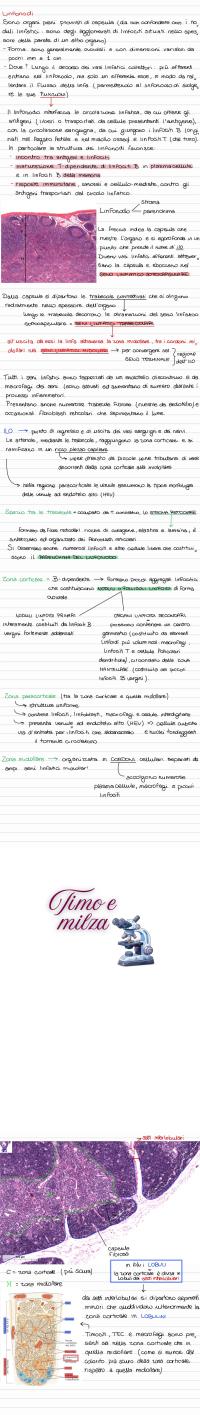 Linfonodi
Sono organi pieni provvisti di capsula (da non confondere con i no-
duli linfatici : sono degli agglomerati di linfociti situati nello spes-
sore della parete di un altro organo).
- Forma : sono generalmente ovoidali e con dimensioni variabili da
pochi mm a 1 cm
- Dove ? Lungo il decorso dei vasi linfatici collettori : più afferenti
entrano nel linfonodo, ma solo un efferente esce, in modo da ral-
lentare il flusso della linfa (permettendo al linfonodo di svolge-
re le sue FUNZIONI)
Il linfonodo interfaccia la circolazione linfatica, da cui affluiscono gli
antigeni (liberi o trasportati da cellule presentanti l'antigene),
con la circolazione sanguigna, da cui giungono i linfociti B (origi-
nati nel fegato fetale e nel midollo osseo) e linfociti T (del timo).
In particolare la struttura dei linfonodi favorisce:
- incontro tra antigeni e linfociti
- maturazione T-dipendente di linfociti B in plasmacellule
e in linfociti B della memoria
- risposte immunitarie, umorali e cellulo-mediate, contro gli
antigeni trasportati dal circolo linfatico.
Linfonodo
stroma
parenchima
La freccia indica la capsula che
riveste l'organo e si approfonda in un
punto che prende il nome di ilo.
Diversi vasi linfatici afferenti attraver-
sano la capsula e sboccano nel
SENO LINFATICO SOTTOCAPSULARE
Dalla capsula si dipartono le trabecole connettivali che si dirigono
radialmente nello spessore dell'organo
lungo le trabecole decorrono le diramazioni del seno linfatico
sottocapsulare = SENI LINFATICI TRABECOLARI
gli ultimi deviano la linfa attraverso la zona midollare, tra i cordoni mi-
dollari, nei SENI LINFATICI MIDOLLARI → per convergere nel
SENO TERMINALE
regione
dell'ilo
Tutti i seni linfatici sono tappezzati da un endotelio discontinuo e da
macrofagi dei seni (sono sessili ed aumentano di numero durante i
processi infiammatori.
Presentano anche numerose trabecole fibrose (rivestite da endotelio) e
occasionali fibroblasti reticolari che attraversano il lume.
ILO → punto di ingresso e di uscita dei vasi sanguigni e dei nervi.
Le arteriole, mediante le trabecole, raggiungono la zona corticale e si
ramificano in un ricco plesso capillare
viene drenato da piccole vene tributarie di vene
decorrenti dalla zona corticale alla midollare
nella regione paracorticale le venule assumono la tipica morfologia
delle venule ad endotelio alto (HEV)
Spazio tra le trabecole = occupato da t. connettivo, lo STROMA RETICOLARE
formato da fibre reticolari ricche di collagene, elastina e laminina, il
sottofondo ed organizzato dai fibroblasti reticolari
Si osservano anche numerosi linfociti e altre cellule libere che costitui-
scono il PARENCHIMA DEL LINFONODO
Zona corticale = B-dipendente → formata piccoli aggregati linfocitici
che costituiscono NODULI O FOLLICOLI LINFATICI di forma
ovoidale
NODULI LINFATICI PRIMARI
interamente costituiti da linfociti B
vergini fortemente addensati
NODULI LINFATICI SECONDARI
possiedono centralmente un centro
germinativo (costituito da elementi
linfoidi più voluminosi, macrofagi,
linfociti T e cellule follicolari
dendritiche), circondato dalla zona
MANTELLARE (costituita da piccoli
linfociti B vergini).
Zona paracorticale (tra la zona corticale e quella midollare)
→ struttura uniforme
→ contiene linfociti, linfoblasti, macrofagi e cellule interdigitate
→ presenta venule ad endotelio alto (HEV) => cellule cuboidi
via d'entrata per linfociti che abbandonano
il torrente circolatorio
Zona midollare → organizzata in CORDONI cellulari separati da
ampi seni linfatici midollari
accolgono numerose
plasmacellule, macrofagi e piccoli
linfociti
Timo e
milza
setti interlobulari
capsula
fibrosa
C = zona corticale (più scura)
M : zona midollare
in blu i LOBULI
la zona corticale è divisa in
lobuli dai setti interlobulari
dai setti interlobulari si dipartono sepimenti
minori che suddividono ulteriormente la
zona corticale in LOBULINI
Timociti, TEC e macrofagi sono pre-
senti sia nella zona corticale che in
quella midollare
colorito più scuro della zona corticale
rispetto a quella midollare)